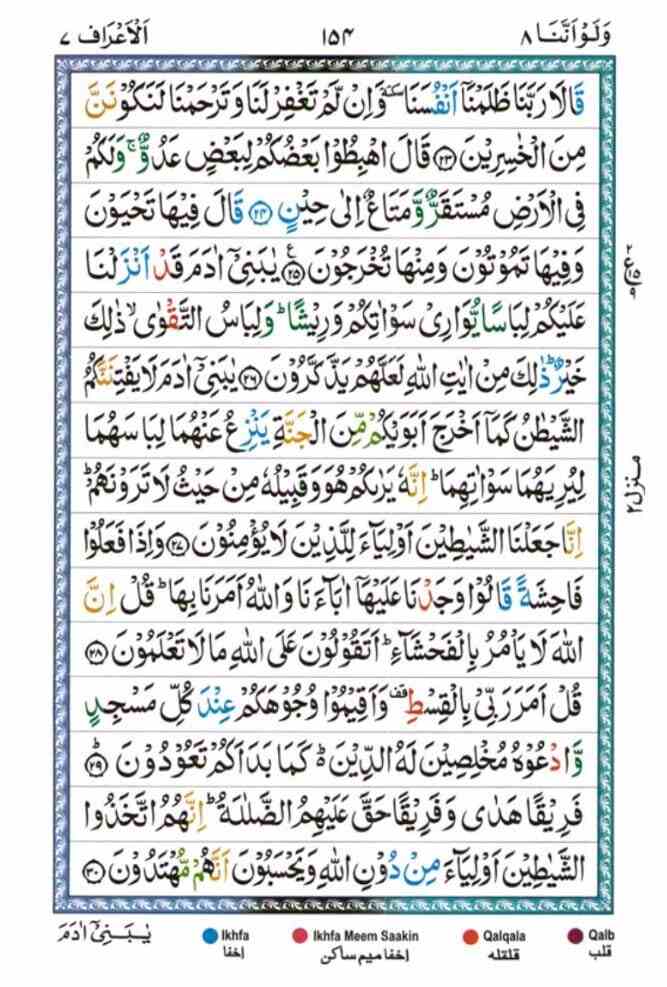 وَلَوْ اَنَّنَا ٨
١٥٤
اَلْاَعْرَاف ٧
قَالَا رَبَّنَا ظَلَمْنَآ اَنْفُسَنَا سكتة وَاِنْ لَّمْ تَغْفِرْ لَنَا وَتَرْحَمْنَا لَنَكُوْنَنَّ
مِنَ الْخٰسِرِيْنَ ۝٢٣ قَالَ اهْبِطُوْا بَعْضُكُمْ لِبَعْضٍ عَدُوٌّ ۚ وَلَكُمْ
فِى الْاَرْضِ مُسْتَقَرٌّ وَّمَتَاعٌ اِلٰى حِيْنٍ ۝٢٤ قَالَ فِيْهَا تَحْيَوْنَ
وَفِيْهَا تَمُوْتُوْنَ وَمِنْهَا تُخْرَجُوْنَ ۝٢٥ ع يٰبَنِىْٓ اٰدَمَ قَدْ اَنْزَلْنَا
عَلَيْكُمْ لِبَاسًا يُّوَارِىْ سَوْاٰتِكُمْ وَرِيْشًا ؕ وَلِبَاسُ التَّقْوٰى ۙ ذٰلِكَ
خَيْرٌ ؕ ذٰلِكَ مِنْ اٰيٰتِ اللهِ لَعَلَّهُمْ يَذَّكَّرُوْنَ ۝٢٦ يٰبَنِىْٓ اٰدَمَ لَا يَفْتِنَنَّكُمُ
الشَّيْطٰنُ كَمَآ اَخْرَجَ اَبَوَيْكُمْ مِّنَ الْجَنَّةِ يَنْزِعُ عَنْهُمَا لِبَاسَهُمَا
لِيُرِيَهُمَا سَوْاٰتِهِمَا ؕ اِنَّهٗ يَرٰىكُمْ هُوَ وَقَبِيْلُهٗ مِنْ حَيْثُ لَا تَرَوْنَهُمْ ؕ
اِنَّا جَعَلْنَا الشَّيٰطِيْنَ اَوْلِيَآءَ لِلَّذِيْنَ لَا يُؤْمِنُوْنَ ۝٢٧ وَاِذَا فَعَلُوْا
فَاحِشَةً قَالُوْا وَجَدْنَا عَلَيْهَآ اٰبَآءَنَا وَاللهُ اَمَرَنَا بِهَا ؕ قُلْ اِنَّ
اللهَ لَا يَاْمُرُ بِالْفَحْشَآءِ ؕ اَتَقُوْلُوْنَ عَلَى اللهِ مَا لَا تَعْلَمُوْنَ ۝٢٨
قُلْ اَمَرَ رَبِّىْ بِالْقِسْطِ قف وَاَقِيْمُوْا وُجُوْهَكُمْ عِنْدَ كُلِّ مَسْجِدٍ
وَّادْعُوْهُ مُخْلِصِيْنَ لَهُ الدِّيْنَ ؕ كَمَا بَدَاَكُمْ تَعُوْدُوْنَ ۝٢٩ؕ
فَرِيْقًا هَدٰى وَفَرِيْقًا حَقَّ عَلَيْهِمُ الضَّلٰلَةُ ؕ اِنَّهُمُ اتَّخَذُوا
الشَّيٰطِيْنَ اَوْلِيَآءَ مِنْ دُوْنِ اللهِ وَيَحْسَبُوْنَ اَنَّهُمْ مُّهْتَدُوْنَ ۝٣٠
منزل ٢
يٰبَنِىْٓ اٰدَمَ
Ikhfa
إخفا
Ikhfa Meem Saakin
إخفا ميم ساكن
Qalqala
قلقله
Qalb
قلب